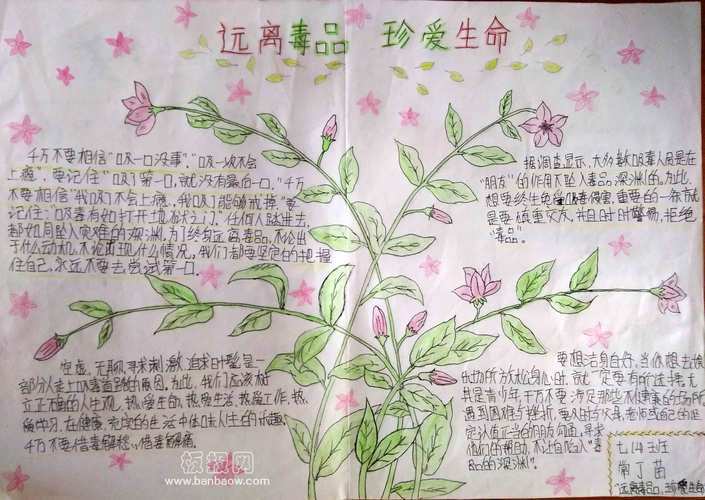 远离毒品 珍爱生命
千万不要相信“吸一口没事”，“吸一次不会
上瘾”，要记住“吸了第一口，就没有最后一口。”千万
不要相信“我吸了不会上瘾，我吸了能够戒掉。”要
记住：“吸毒有如打开地狱之门。”任何人踏进去，
都如同坠入灾难的深渊，为了终身远离毒品，不论出
于什么动机，不论出现什么情况，我们都要坚定的把握
住自己，永远不要去尝试第一口。
据调查显示，大多数吸毒人员是在
“朋友”的作用下坠入毒品深渊的，为此，
想要终生免受毒侵害，重要的一条就
是要慎重交友，并且时时警惕，拒绝
“毒品”。
空虚，无聊，寻求刺激，追求时髦是一
部分人走上吸毒道路的原因，为此，我们应该树
立正确的人生观，热爱生命，热爱生活，热爱工作，热
爱学习，在健康，充实的生活中体味人生的乐趣，
千万不要借毒解愁，借毒解痛。
要想洁身自好，当你想去娱
乐场所放松身心时，就一定要有所选择，尤
其是青少年千万不要涉足那些不健康的场所
遇到困难与挫折，要及时与父母，老师或自己的坦
定认值正当的朋友沟通，寻求
他们的帮助，不让自己陷入“毒
品的深渊”。
七14王班
丁苗
远离毒品，珍爱生命
板报网
www.banbaow.com